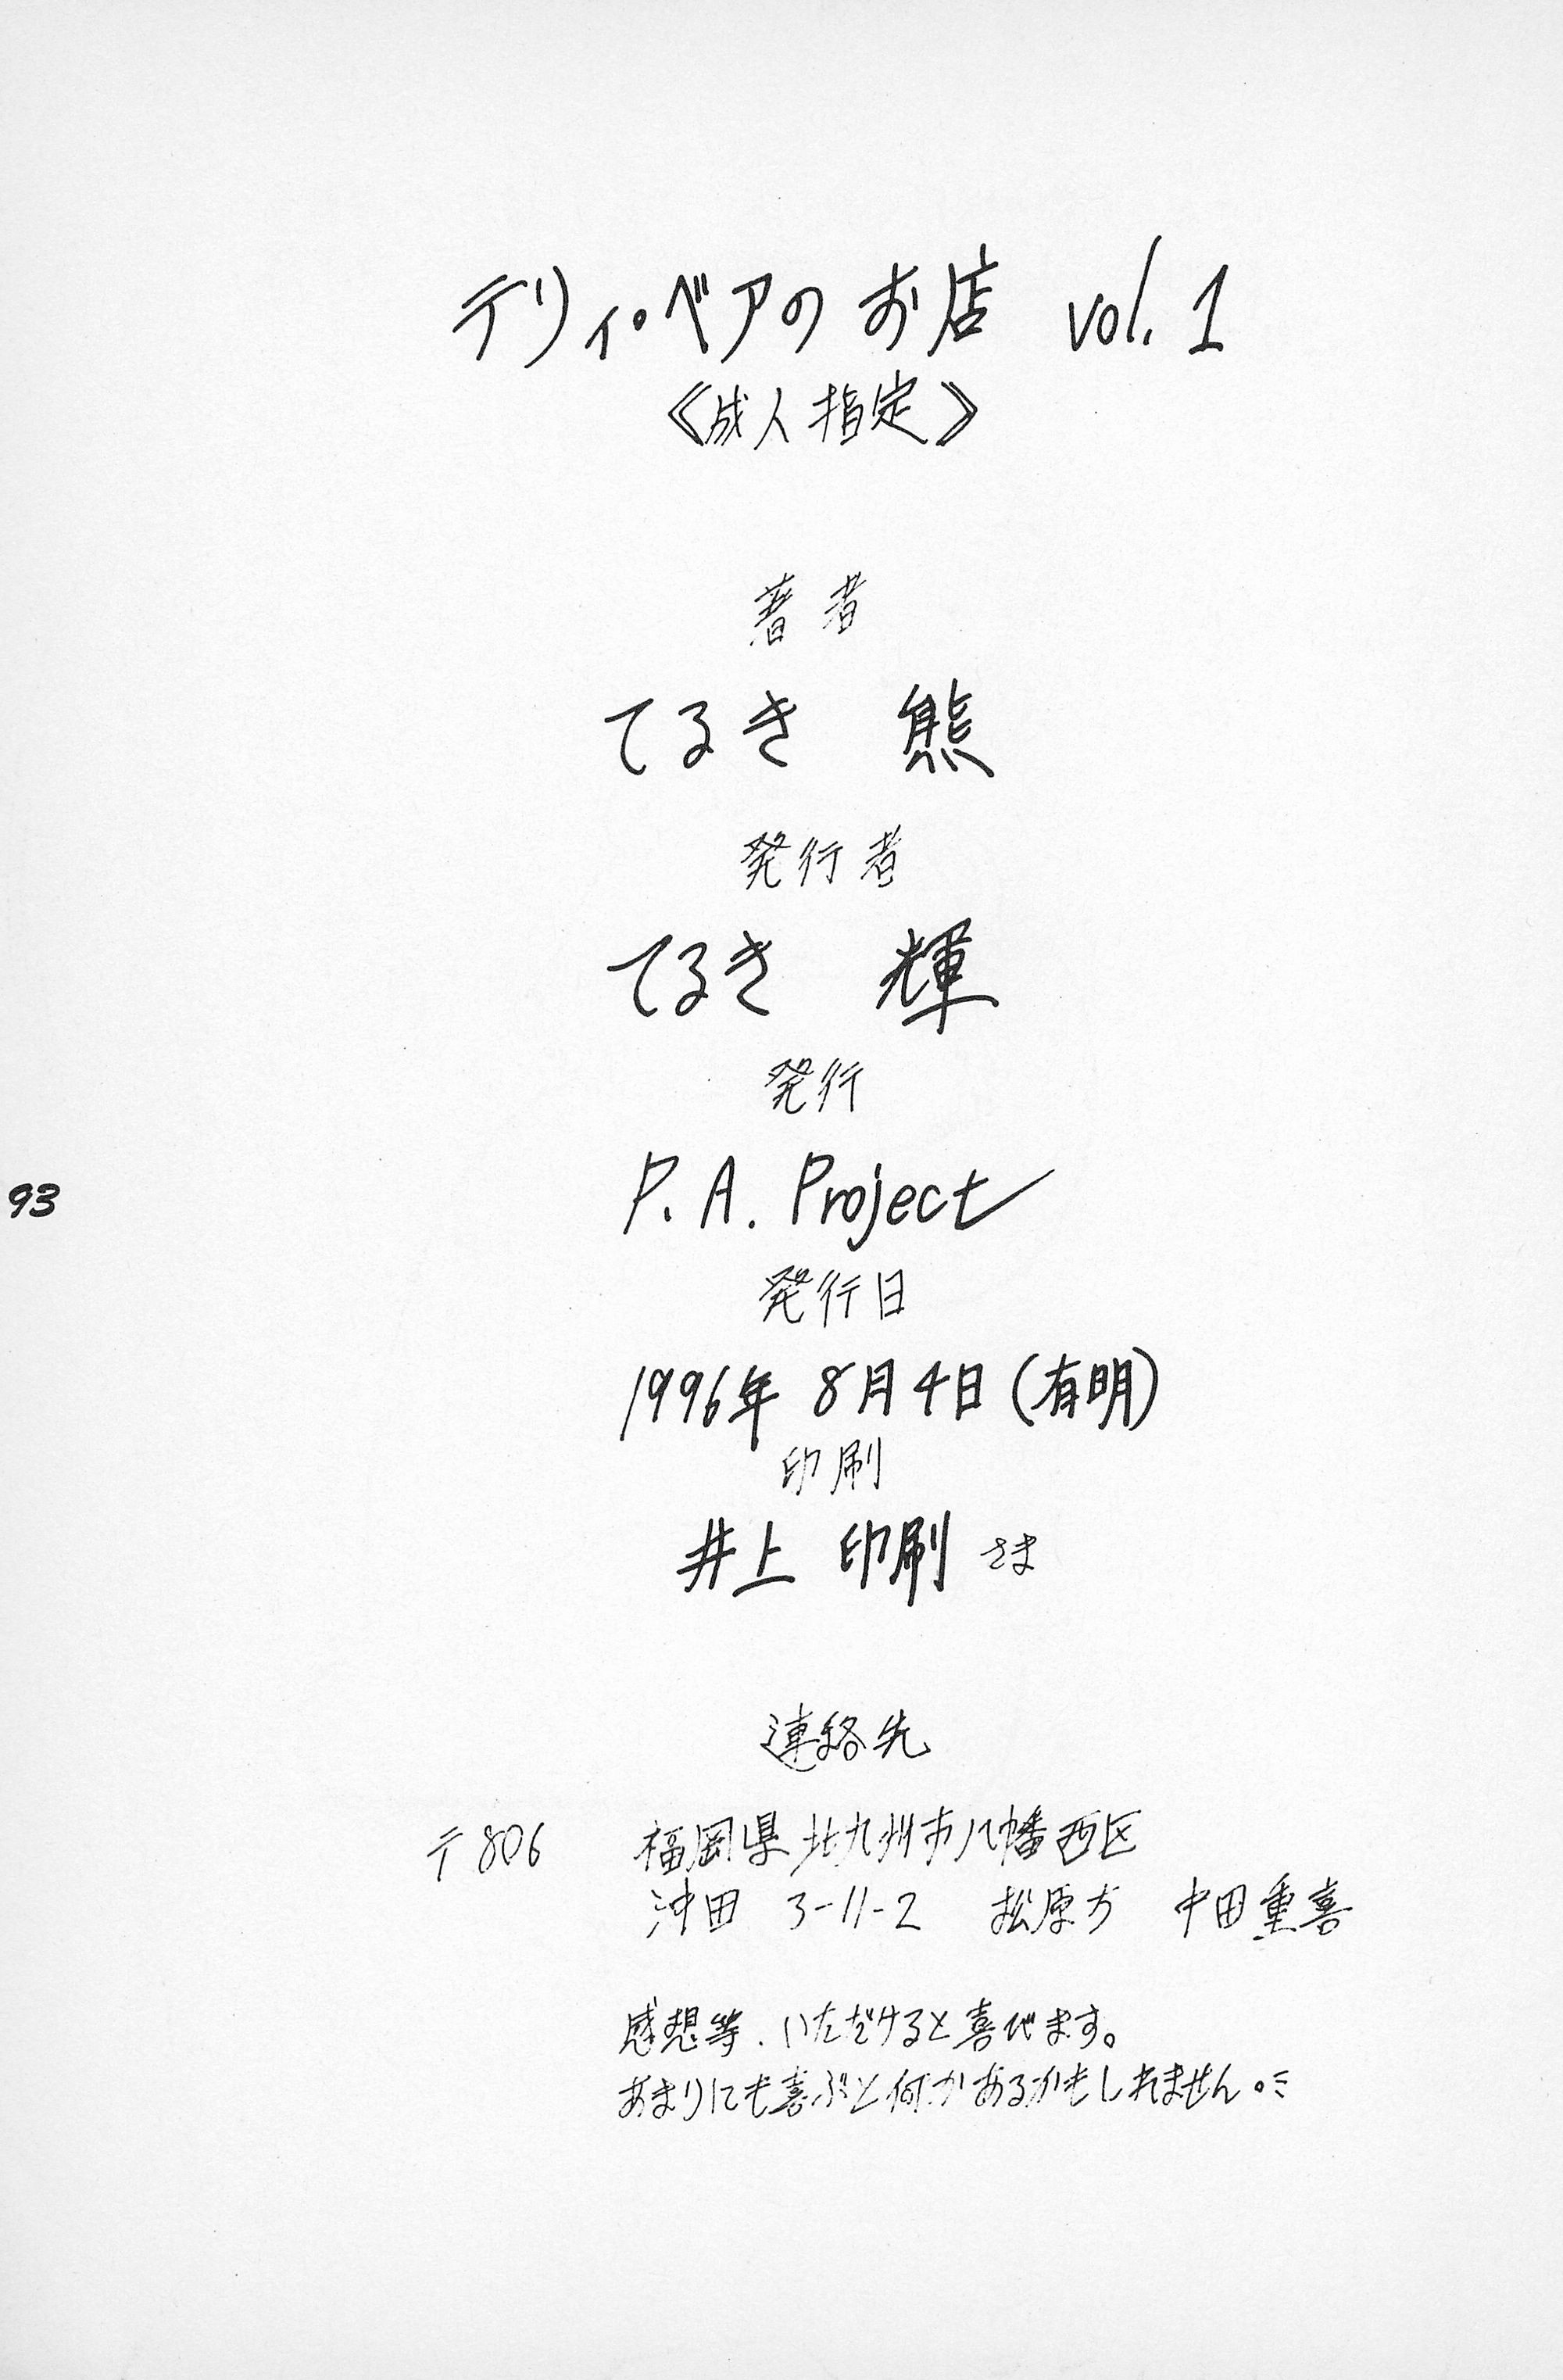 テリィ・ベアの お店 vol. 1
《成人指定》
著者
てるき 熊
発行者
てるき 輝
発行
P. A. Project
発行日
1996年 8月4日 (有明)
印刷
井上 印刷 さま
連絡先
〒806 福岡県北九州市八幡西区
沖田 3-11-2 松原方 中田重喜
感想等、いただけると喜びます。
あまりにも喜ぶと何かあるかもしれません。
93